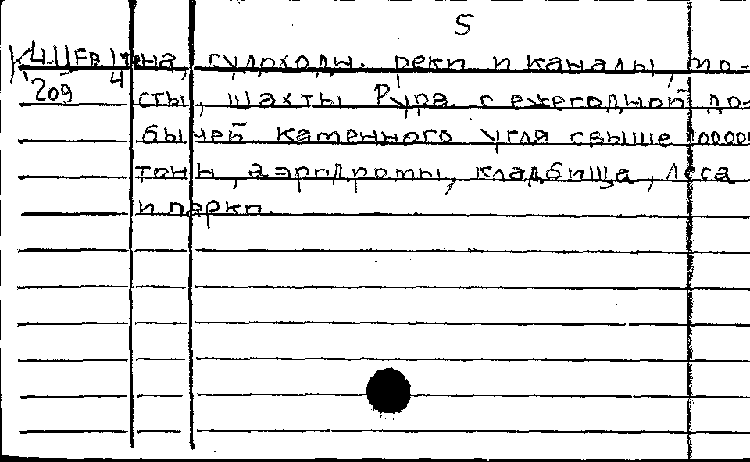 5
на, судоходн. реки и каналы, мо-
209 4 сты, шахты Рура с ежегодной до-
бычей каменного угля свыше 100000
тонн, аэродромы, кладбища, леса
и парки.